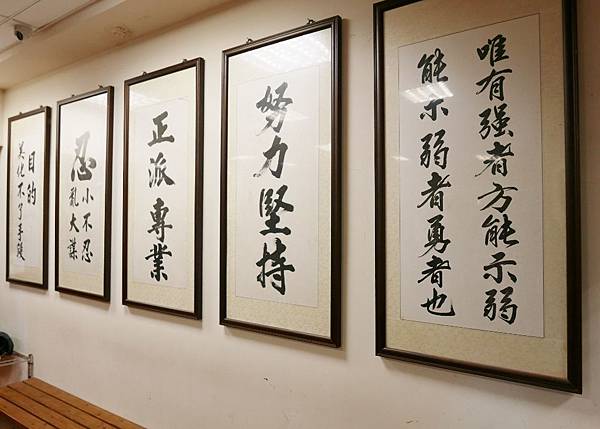 唯有强者方能示弱
能示弱者勇者也
努力堅持
正派專業
忍
小不忍
亂大謀
目的
美化不了手段